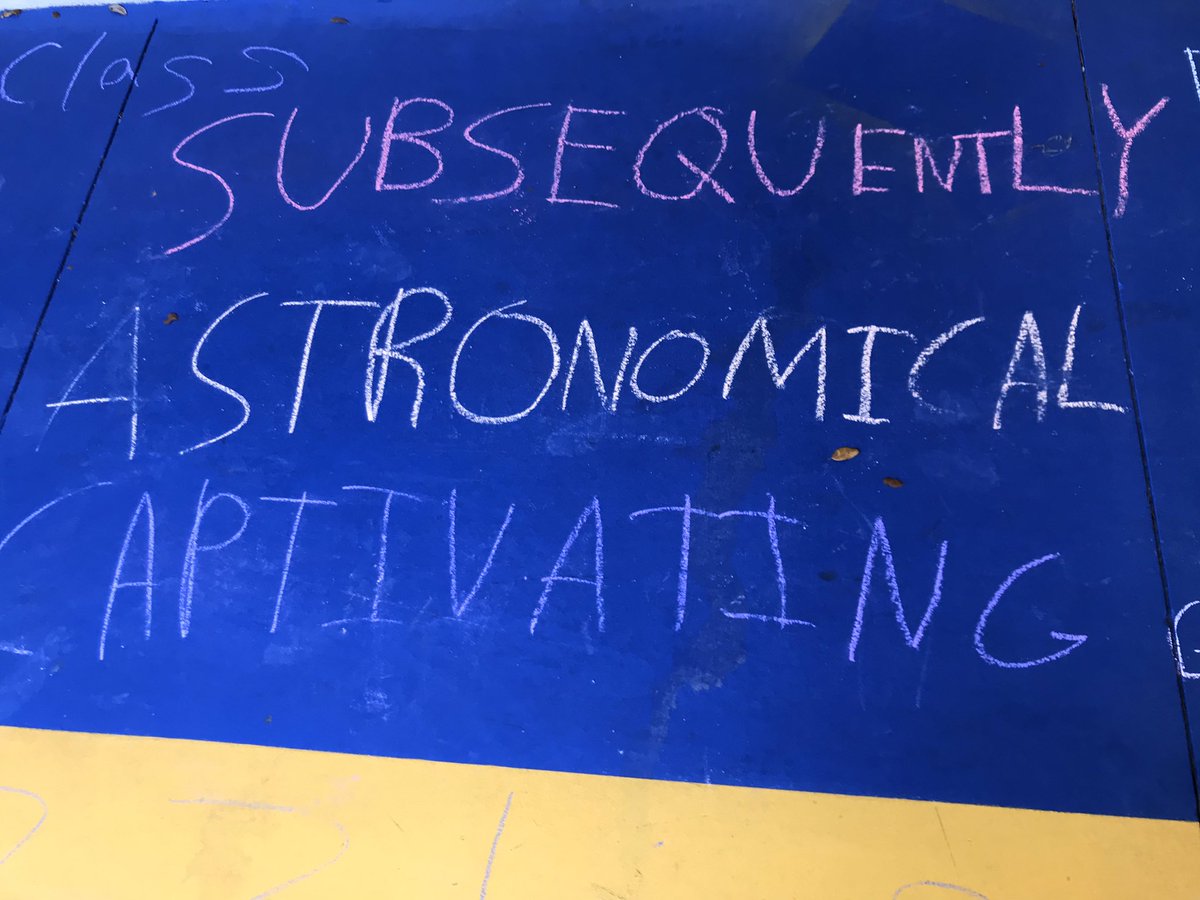 class
SUBSEQUENTLY
ASTRONOMICAL
CAPTIVATING